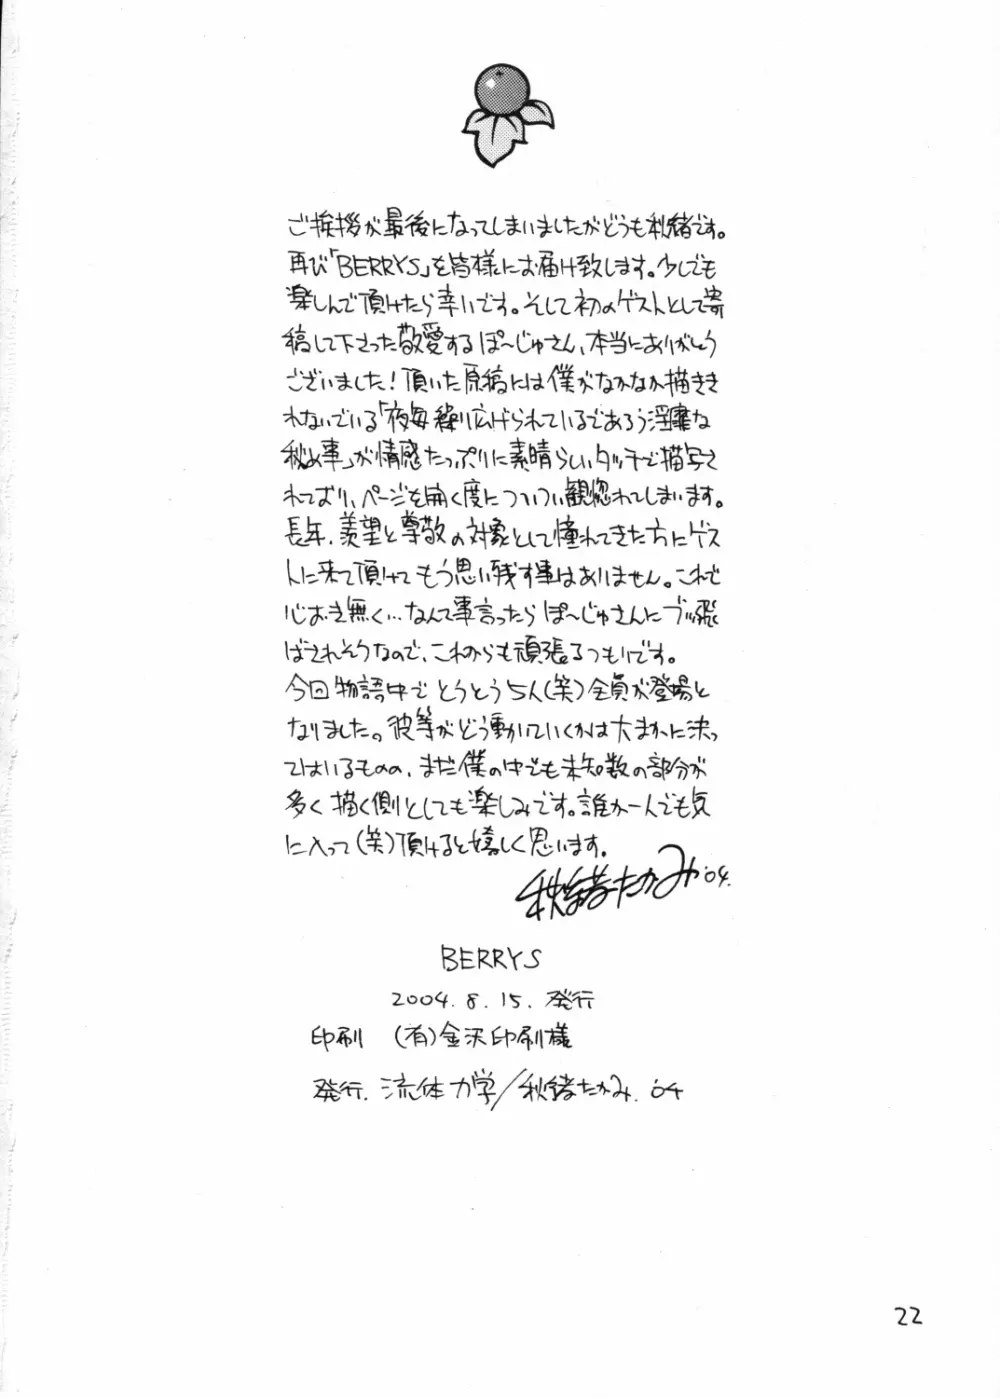 ご挨拶が最後になってしまいましたがどうも秋緒です。
再び「BERRYS」を皆様にお届け致します。少しでも
楽しんで頂けたら幸いです。そして初のゲストとして寄
稿して下さった敬愛するぽ〜じゅさん、本当にありがとう
ございました！頂いた原稿には僕がなかなか描きき
れないでいる「夜毎繰り広げられているであろう淫靡な
秘め事」が情感たっぷりに素晴らしいタッチで描写さ
れており、ページを開く度についつい観惚れてしまいます。
長年、羨望と尊敬の対象として憧れてきた方にゲス
トに来て頂けてもう思い残す事はありません。これで
心おき無く…なんて事言ったらぽ〜じゅさんにブッ飛
ばされそうなので、これからも頑張るつもりです。
今回物語中でとうとう5人(笑)全員が登場と
なりました。彼等がどう動いていくかは大まかに決っ
てはいるものの、まだ僕の中でも未知数の部分が
多く描く側としても楽しみです。誰か一人でも気
に入って(笑)頂けると嬉しく思います。
秋緒たかみ '04.
BERRYS
2004. 8. 15. 発行
印刷 (有)金沢印刷様
発行. 流体力学/秋緒たかみ. '04
22